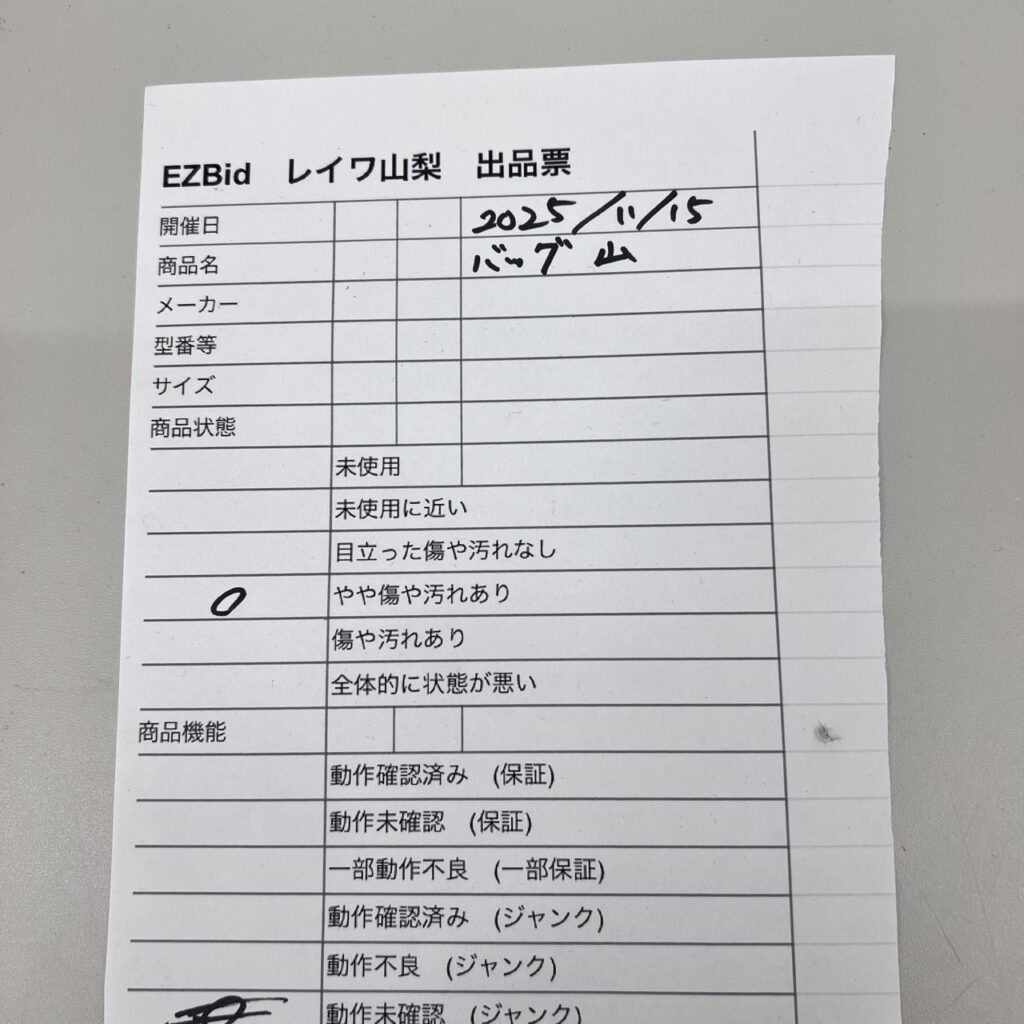 EZBid レイワ山梨 出品票
開催日 2025/11/15
商品名 バッグ 山
メーカー
型番等
サイズ
商品状態
未使用
未使用に近い
目立った傷や汚れなし
○ やや傷や汚れあり
傷や汚れあり
全体的に状態が悪い
商品機能
動作確認済み (保証)
動作未確認 (保証)
一部動作不良 (一部保証)
動作確認済み (ジャンク)
動作不良 (ジャンク)
動作未確認 (ジャンク)